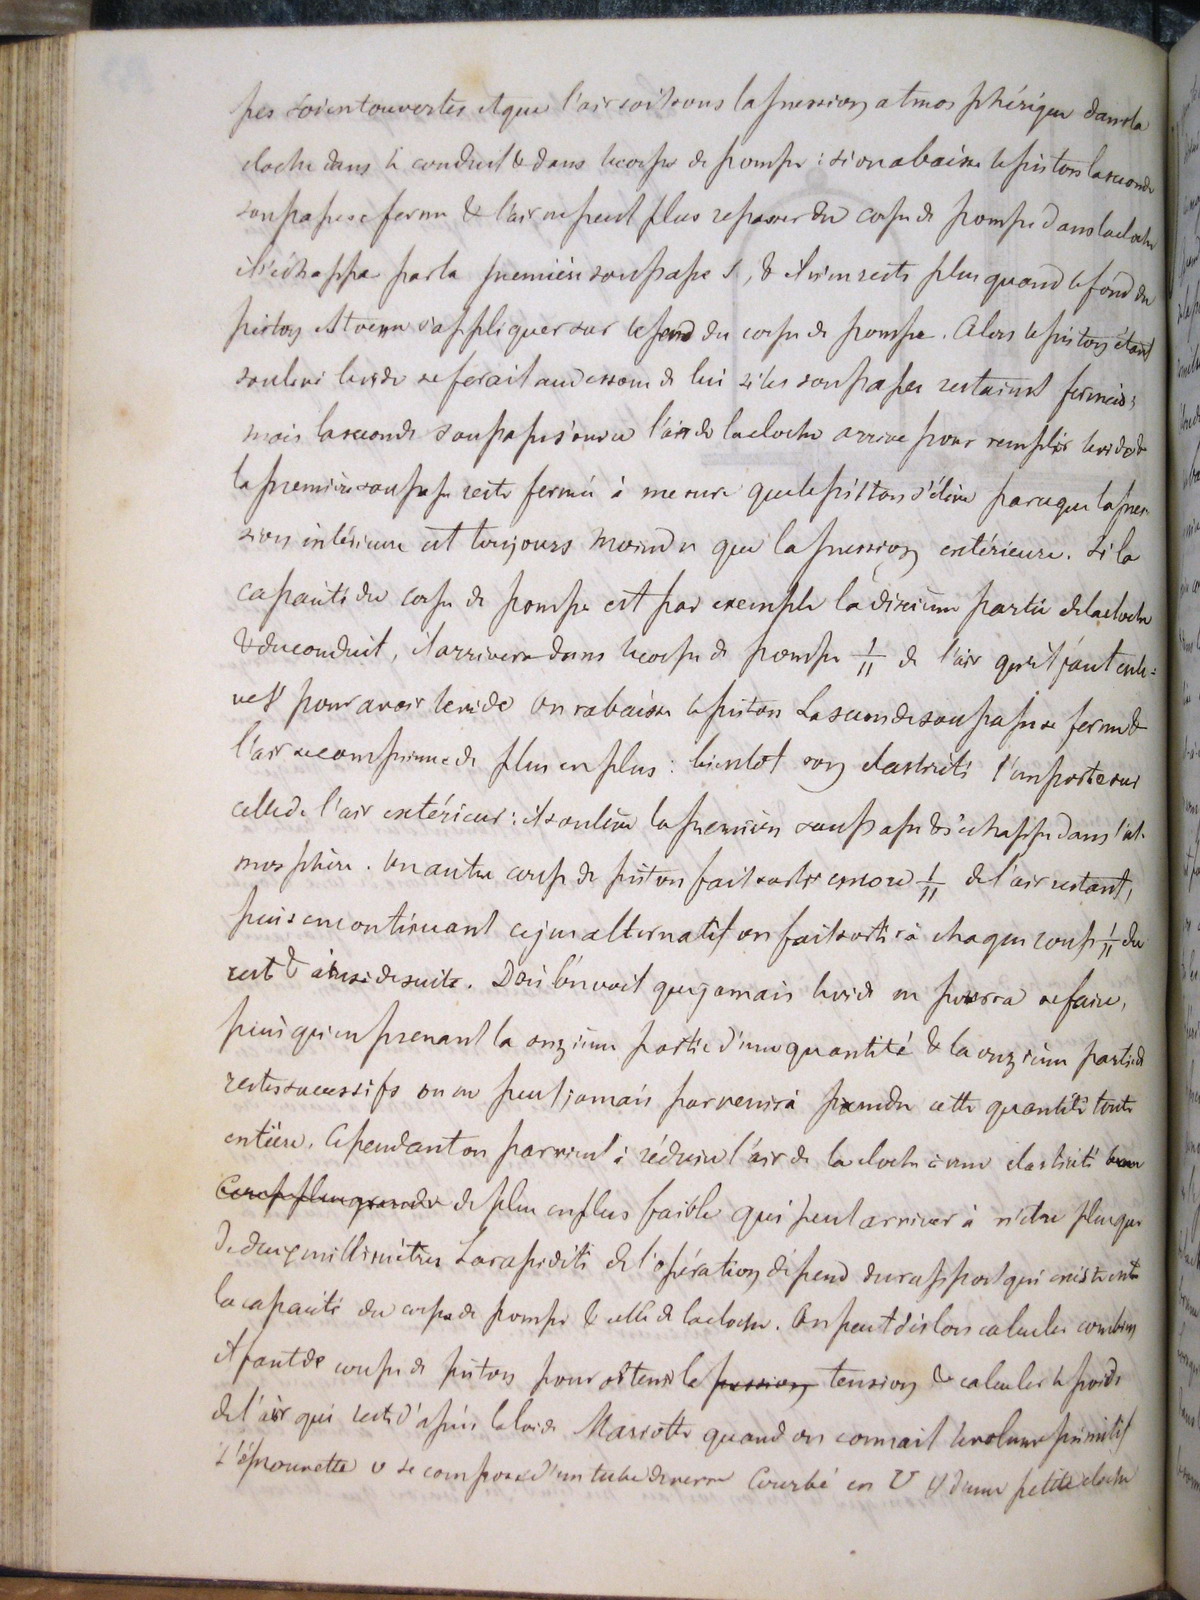 pes soient ouvertes et que l'air soit sous la pression atmosphérique dans la
cloche dans le conduit & dans le corps de pompe : si on abaisse le piston la seconde
soupape se ferme & l'air ne peut plus repasser du corps de pompe dans la cloche
il s'échappe par la première soupape S, & il n'en reste plus quand le fond du
piston est venu s'appliquer sur le fond du corps de pompe. Alors le piston étant
soulevé le vide se ferait au dessous de lui si les soupapes restaient fermées ;
mais la seconde soupape s'ouvre l'air de la cloche arrive pour remplir le vide &
la première soupape reste fermée à mesure que le piston s'élève parceque la pres
sion intérieure est toujours moindre que la pression extérieure. Si la
capacité du corps de pompe est par exemple la dixième partie de la cloche
& du conduit, il arrivera dans le corps de pompe 1/11 de l'air qu'il faut enle=
ver pour avoir le vide on rabaisse le piston La seconde soupape se ferme &
l'air se comprime de plus en plus : bientôt son élasticité l'emporte sur
celle de l'air extérieur : il soulève la première soupape & s'échappe dans l'at-
mosphère. Un autre coup de piston fait sortir encore 1/11 de l'air restant,
puis en continuant ce jeu alternatif on fait sortir à chaque coup 1/11 du
reste & ainsi de suite. D'où l'on voit que jamais le vide ne pourra se faire,
puisqu'en prenant la onzième partie d'une quantité & la onzième partie d
restes successifs on ne peut jamais parvenir à prendre cette quantité toute
entière. Cependant on parvient à réduire l'air de la cloche à une élasticité
de plus en plus faible qui peut arriver à n'être plus que
de deux millimètres La rapidité de l'opération dépend du rapport qui existe entre
la capacité du corps de pompe & celle de la cloche. On peut dès lors calculer combien
il faut de coups de piston pour obtenir la pression tension & calculer le poids
de l'air qui reste d'après la loi de Mariotte quand on connait le volume primitif
L'éprouvette v se compose d'un tube de verre Courbé en U & d'une petite cloche